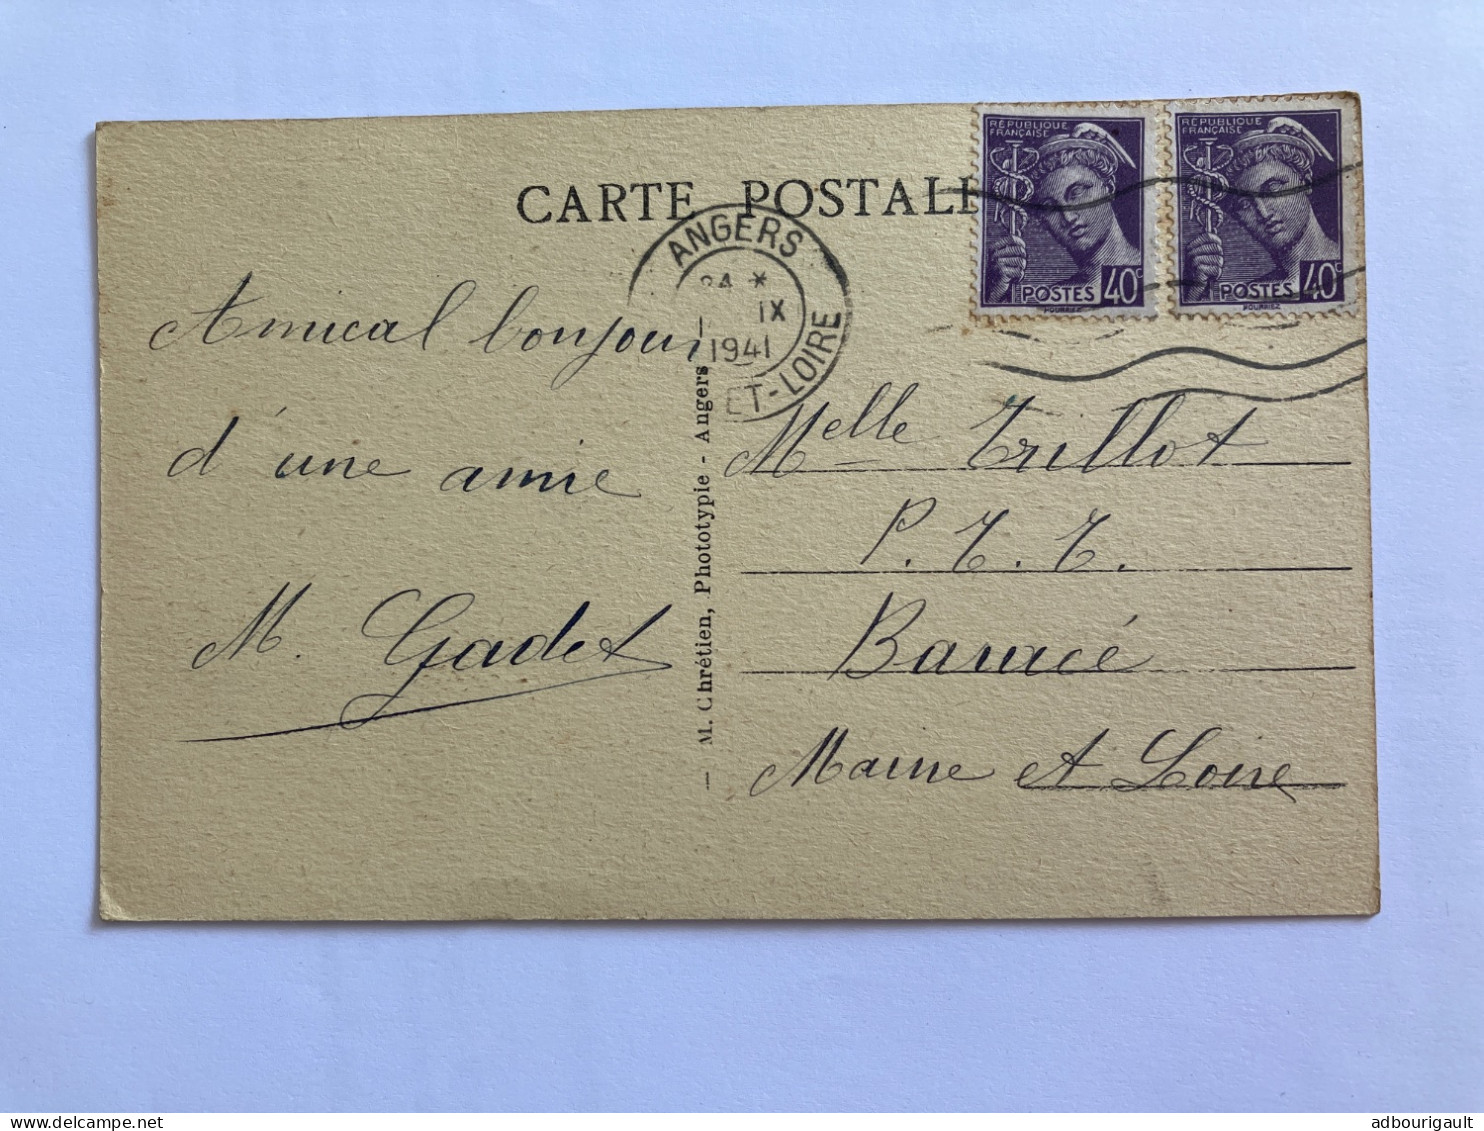 CARTE POSTALE
RÉPUBLIQUE
FRANÇAISE
POSTES 40c
RÉPUBLIQUE
FRANÇAISE
POSTES 40c
ANGERS
IX
1941
ET-LOIRE
Amical bonjour
d'une amie
M. Gadet
M. Chrétien, Phototypie - Angers
Melle Trillot
P.T.T.
Baracé
Maine et Loire
adbourigault